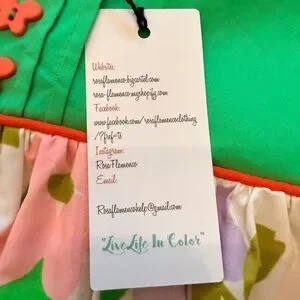 Website:
rosaflamenco.bigcartel.com
rosa-flamenco.myshopify.com
Facebook:
www.facebook.com/rosaflamencoclothing
/?fref=ts
Instagram:
Rosa Flamenco
Email:
Rosaflamencohelp@gmail.com
"Live Life In Color"